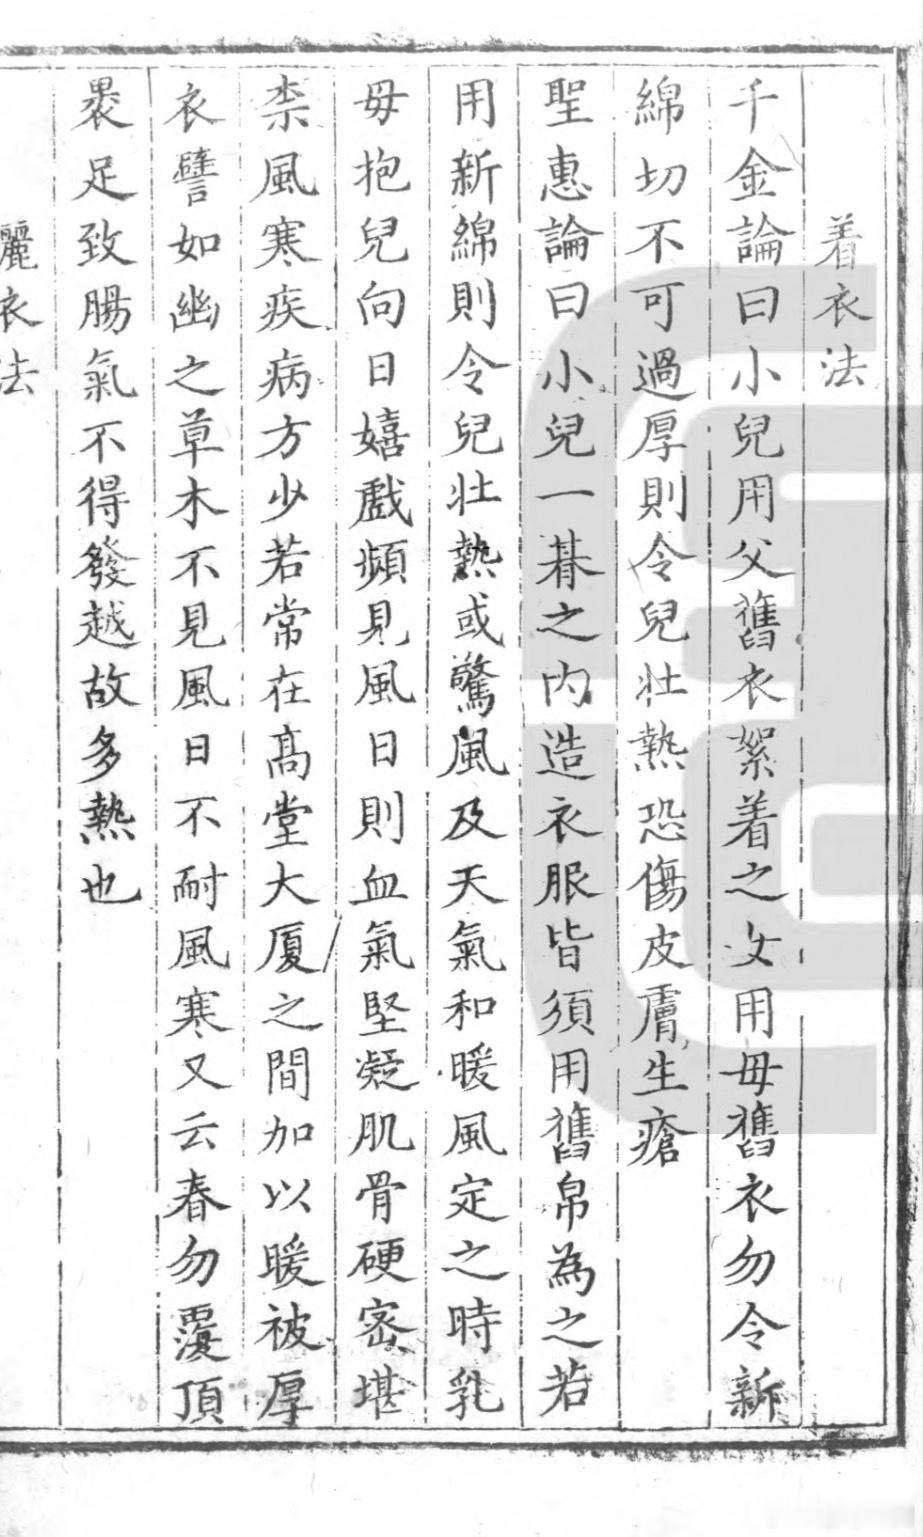 着衣法
千金論曰小兒用父舊衣絮着之女用母舊衣勿令新
綿切不可過厚則令兒壯熱恐傷皮膚生瘡
聖惠論曰小兒一朞之內造衣服皆須用舊帛為之若
用新綿則令兒壯熱或驚風及天氣和暖風定之時乳
母抱兒向日嬉戲頻見風日則血氣堅凝肌骨硬密堪
柰風寒疾病方少若常在高堂大厦之間加以暖被厚
衣譬如幽之草木不見風日不耐風寒又云春勿覆頂
裹足致腸氣不得發越故多熱也
衣法